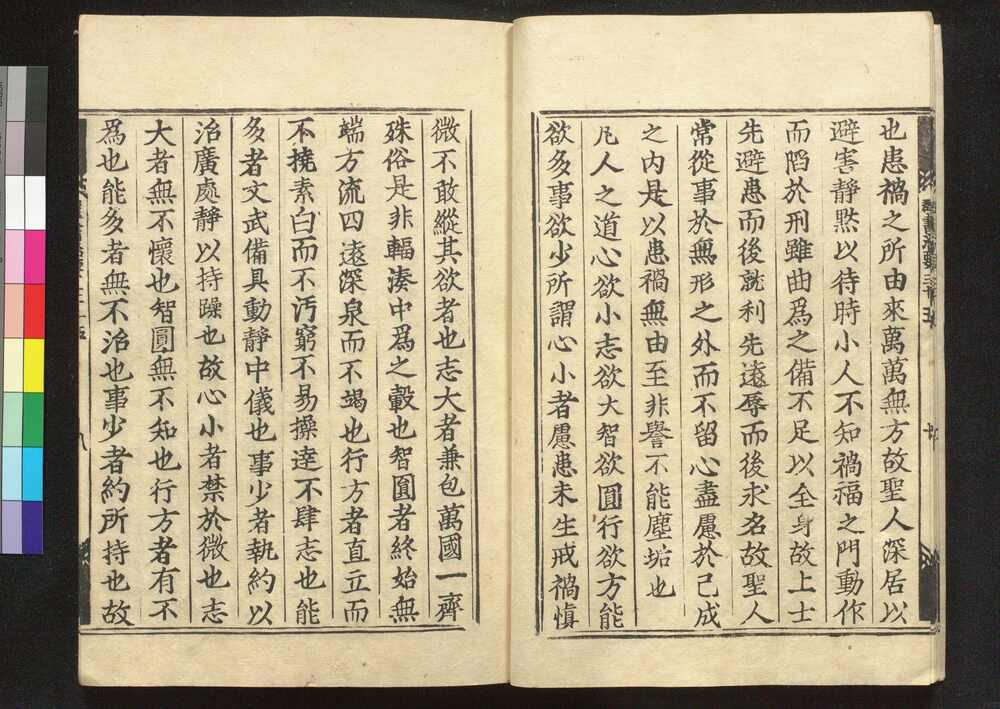 也患禍之所由來萬萬無方故聖人深居以
避害靜黙以待時小人不知禍福之門動作
而陷於刑雖曲爲之備不足以全身故上士
先避患而後就利先遠辱而後求名故聖人
常從事於無形之外而不留心盡慮於已成
之内是以患禍無由至非譽不能塵垢也
凡人之道心欲小志欲大智欲圓行欲方能
欲多事欲少所謂心小者慮患未生戒禍慎
微不敢縱其欲者也志大者兼包萬國一齊
殊俗是非輻湊中爲之轂也智圓者終始無
端方流四遠深泉而不竭也行方者直立而
不撓素白而不汚窮不易操逹不肆志也能
多者文武備具動靜中儀也事少者執約以
治廣處靜以持躁也故心小者禁於微也志
大者無不懷也智圓無不知也行方者有不
爲也能多者無不治也事少者約所持也故